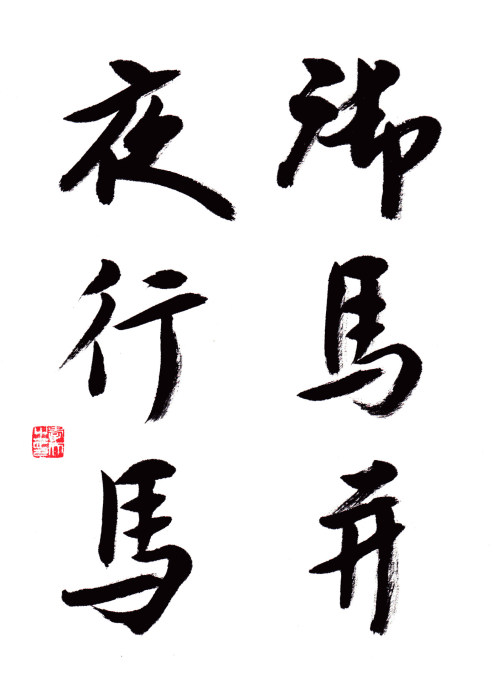 御馬并
夜行馬